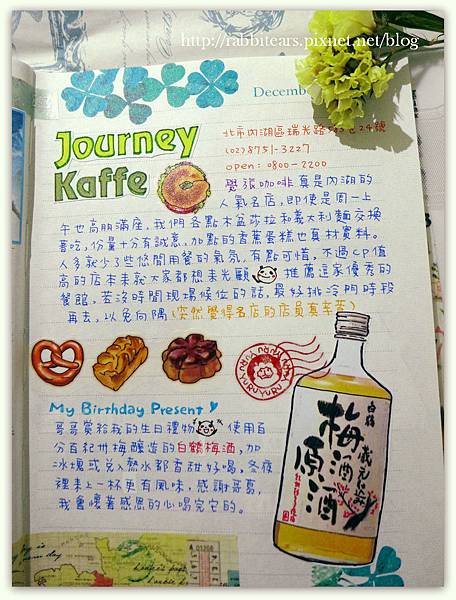 http://rabbitears.pixnet.net/blog
Decemb
Journey
Kaffe
北市內湖區瑞光路
(02)8751-3227
open: 0800-2200
覺張咖啡真是內湖的
人氣名店,即便是周一上
午也高朋滿座,我們各點木盆莎拉和義大利麵交換
著吃,份量十分有誠意,加點的香蕉蛋糕也真材實料。
人多就少了些悠閒用餐的氣氛,有點可惜,不過CP值
高的店本來就大家都想來光顧 推薦這家優秀的
餐館,若沒時間現場候位的話,最好挑冷門時段
再去,以免向隅(突然覺得名店的店員真辛苦)
YURUYURU
My Birthday Present
哥哥賞給我的生日禮物 使用百
分百紀州梅釀造的白鶴梅酒,加
冰塊或兌入熱水都香甜好喝,冬夜
裡來上一杯更有風味,感謝哥葛,
我會懷著感恩的心喝完它的。
白鶴
梅酒
原酒
蔵元仕込